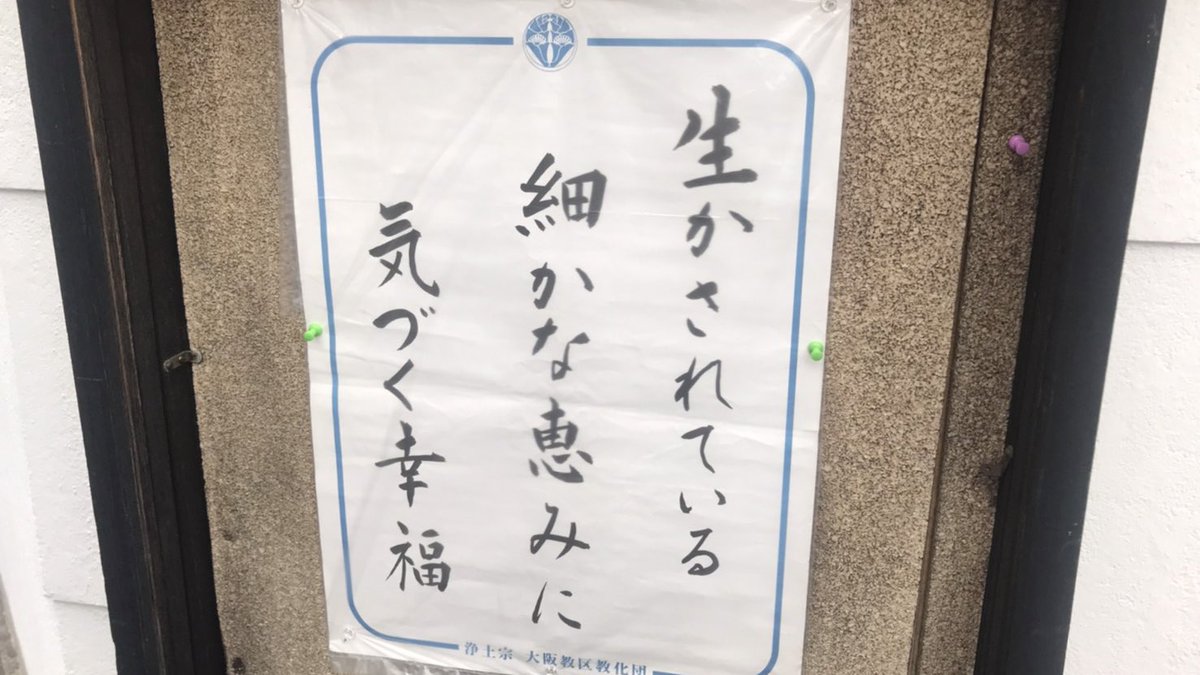 生かされている
細かな恵みに
気づく幸福
浄土宗 大阪教区教化団